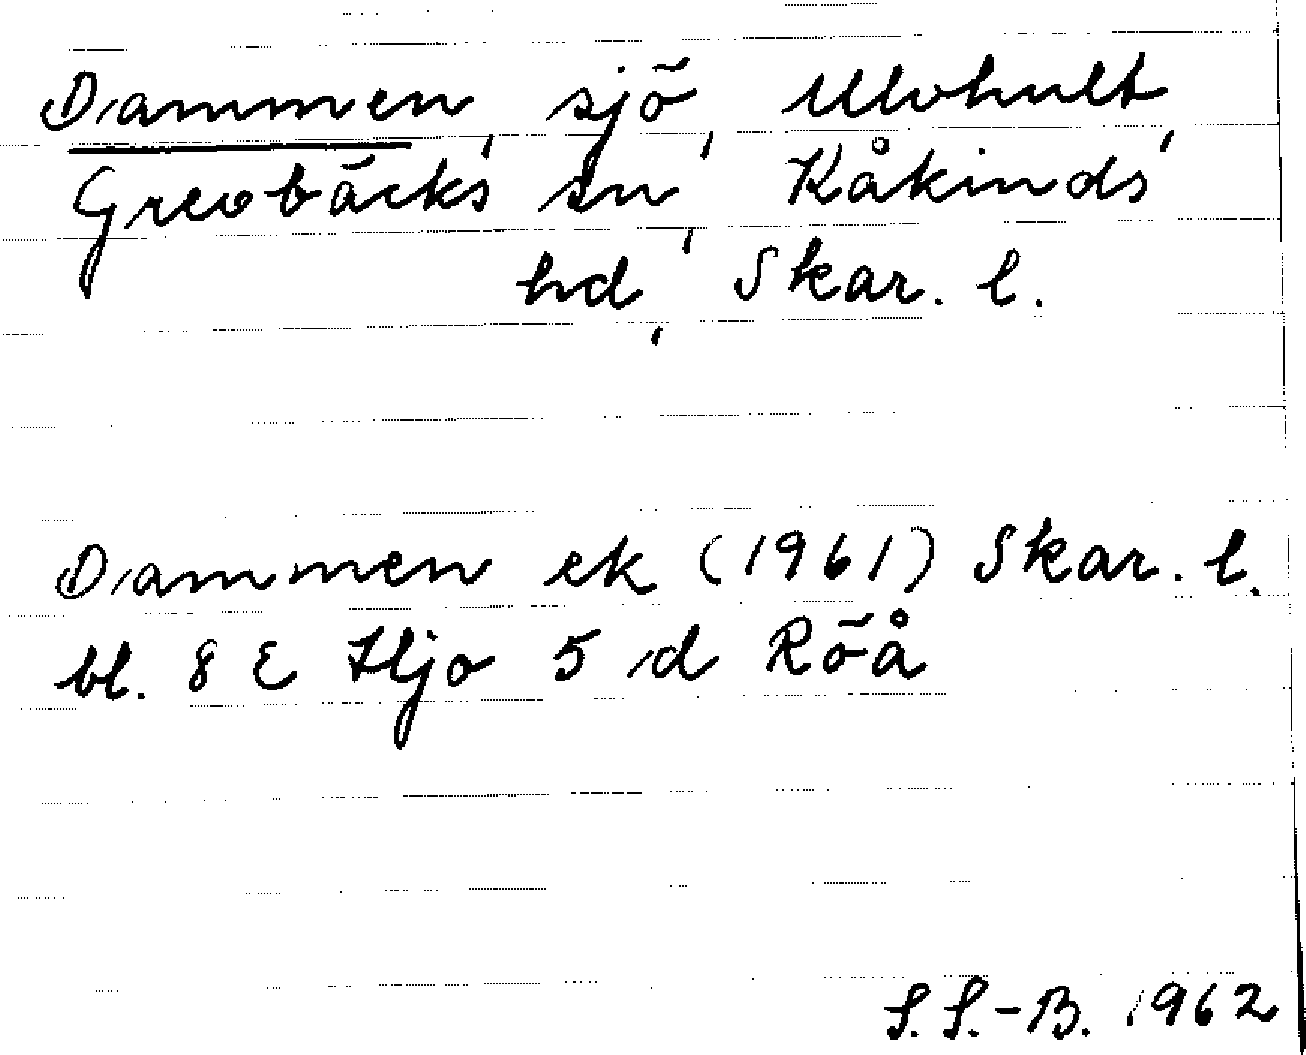 Dammen, sjö, Ulvhult,
Grevbäcks sn, Kåkinds
hd, Skar. l.
Dammen ek (1961) Skar. l.
bl. 8 E Hjo 5 d Röå
S. S.-B. 1962